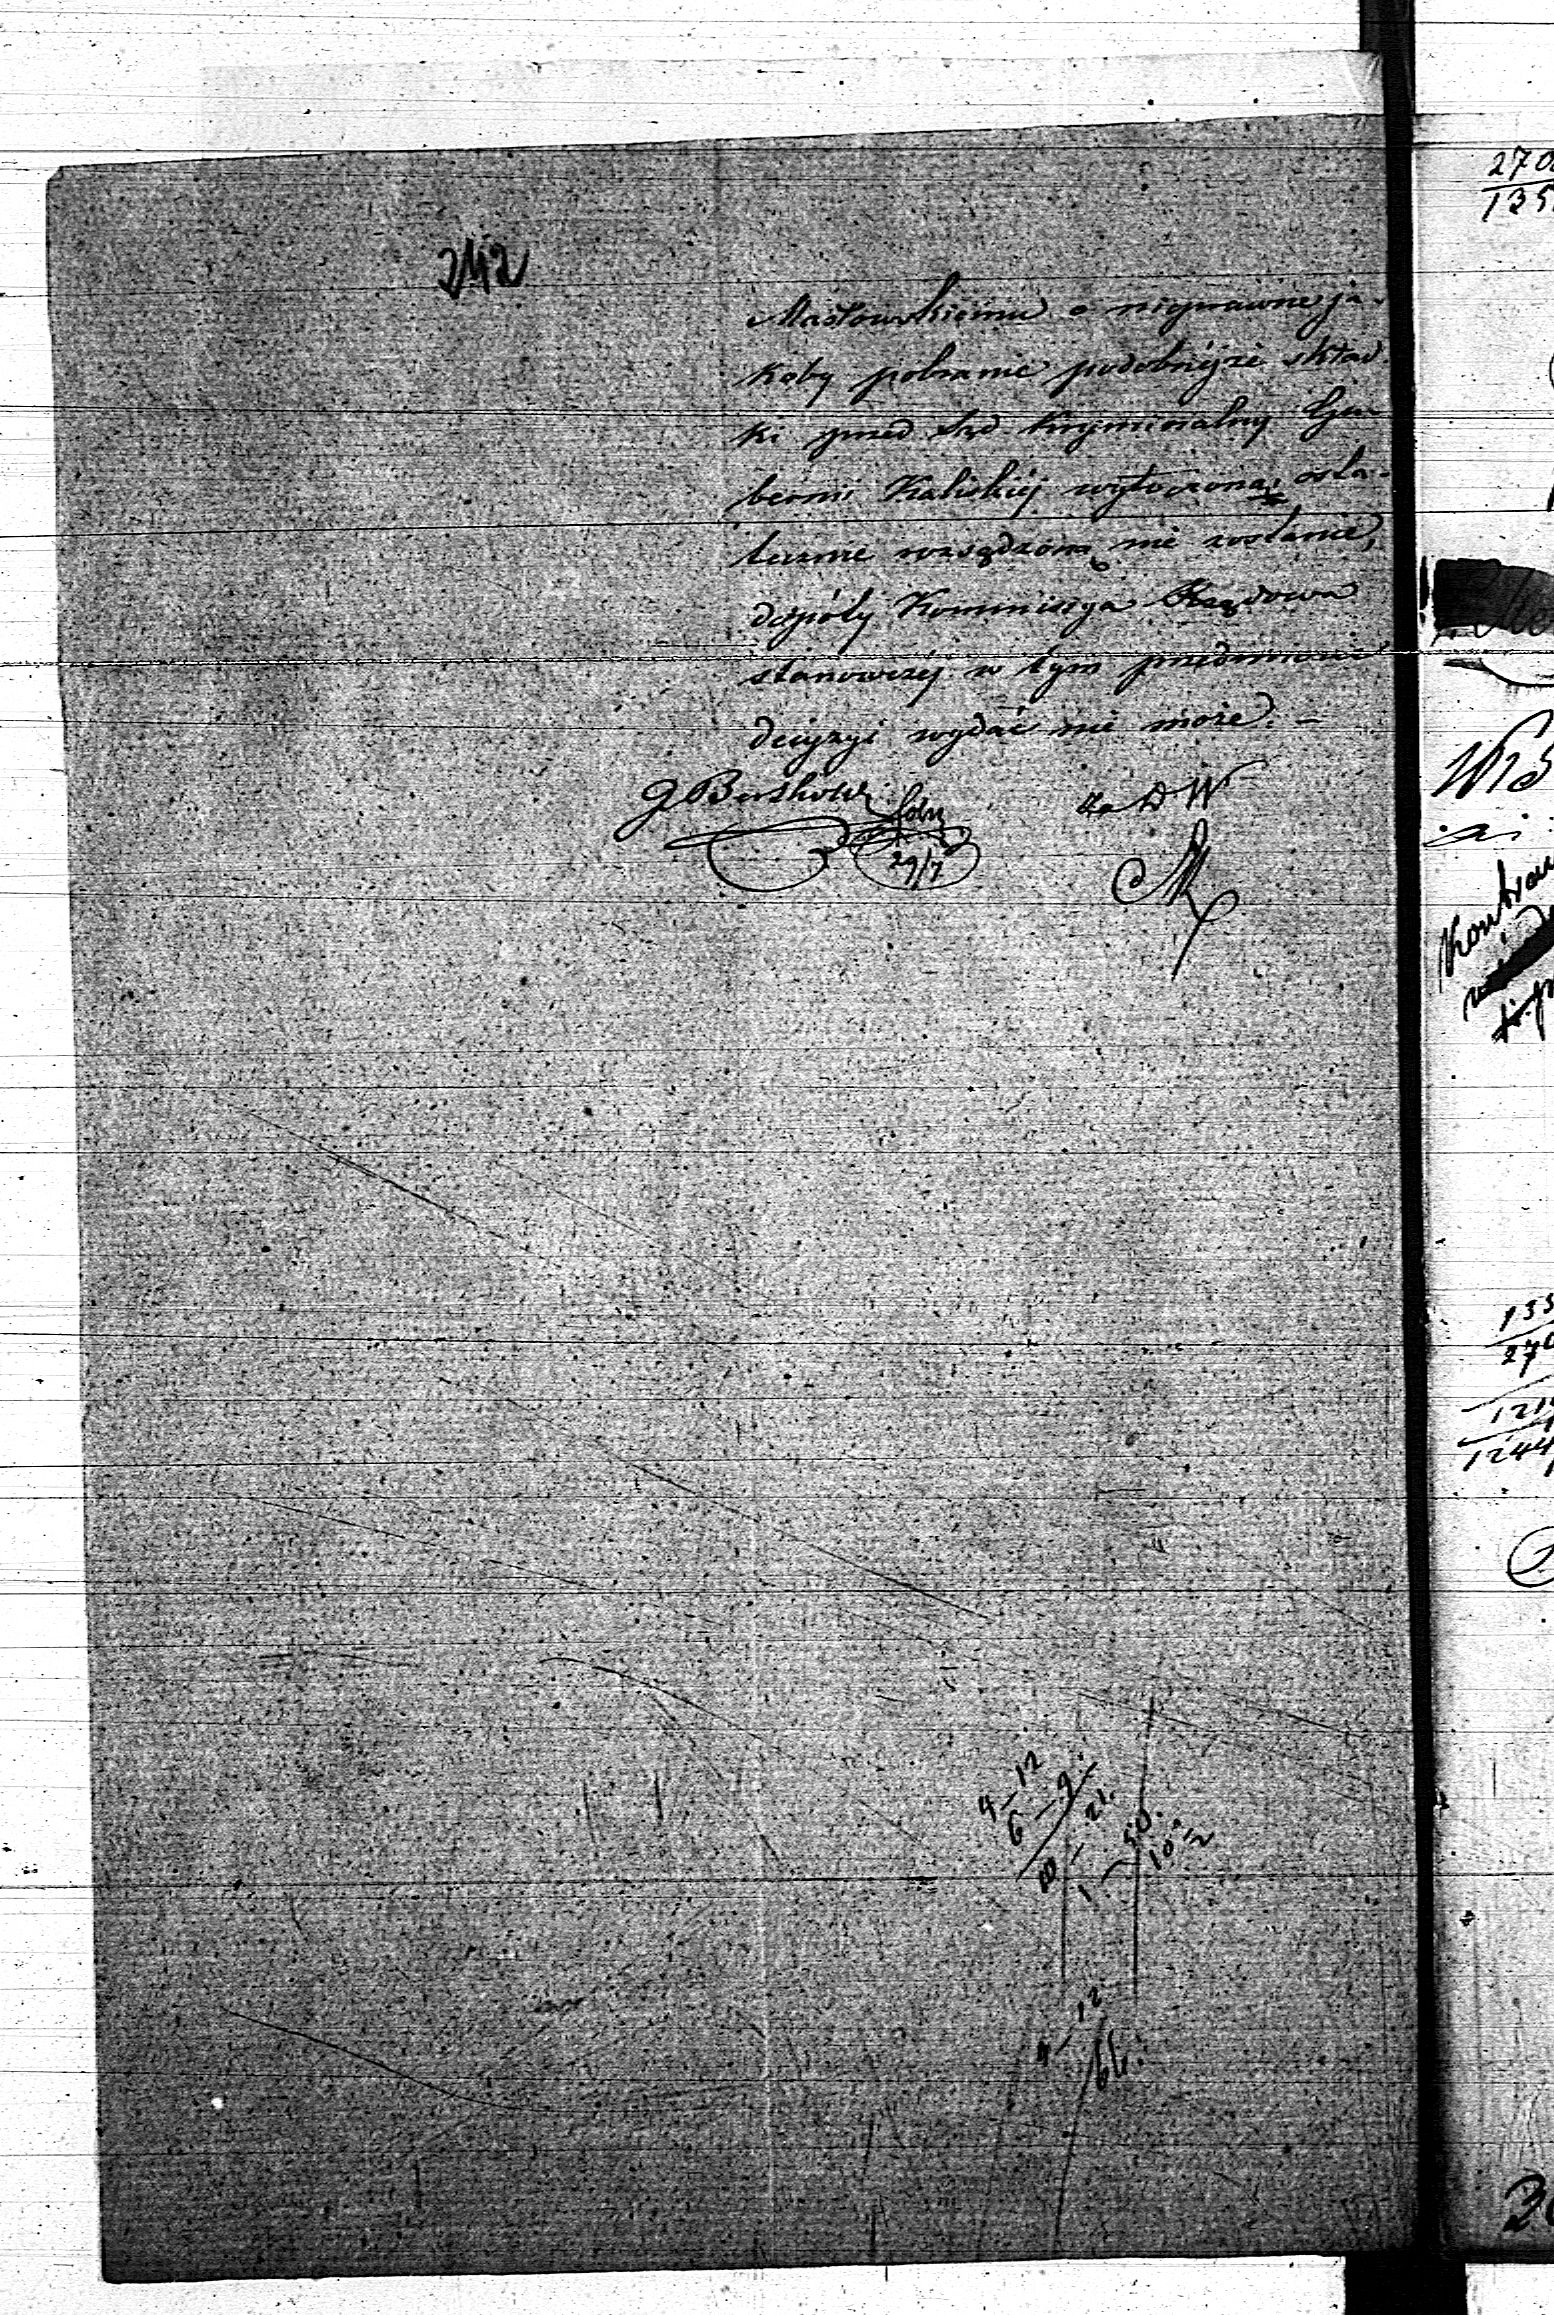 242
Masłowskiemu o nieprawne ja-
koby pobranie podobnéjże skład
ki przed Sąd Kryminalny Gu-
bernii Kaliskiéj wytoczona, osta-
tecznie rozsądzoną nie zostanie,
dopóty Kommissya Rządowa
stanowczéj w tym przedmiocie
decyzyi wydać nie może. –
Za D W
29/7
4 – 12
6 – 9.
10 – 21.
1 – 50.
10 1/2
4 – 12
270
135
Kontrau
135
270
121
1244